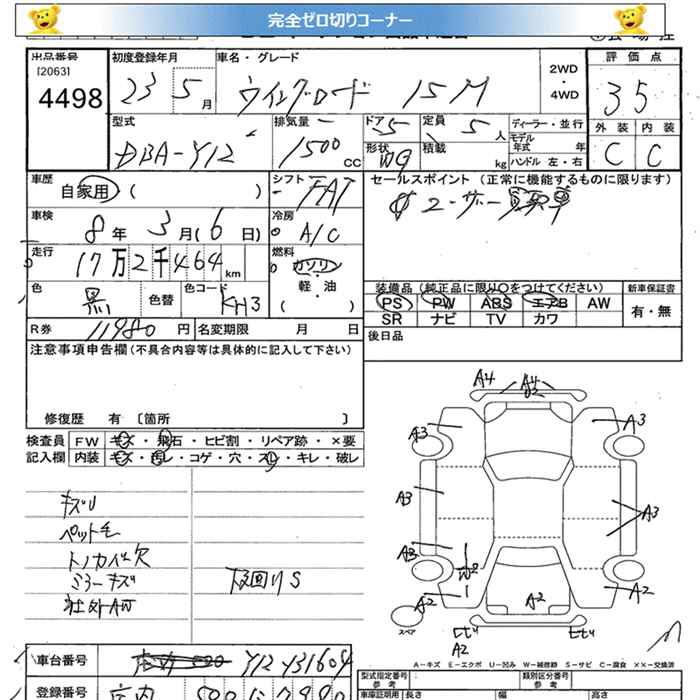 完全ゼロ切りコーナー
出品番号 初度登録年月 車名・グレード 2WD ・ 4WD 評価点
[2063]
4498 23 5月 ウイングロード 15M 35
型式 排気量 ドア 定員 ディーラー・並行 外装 内装
DBA-Y12 1500cc 5 5人 モデル年式 年 C C
形状 WG 積載 kg ハンドル 左・右
車歴 シフト セールスポイント (正常に機能するものに限ります)
自家用 ( ) FAT
車検 冷房
8年 3月(6日) A/C
走行 燃料
17万2千464km ガソリン
軽・油
色 色替 色コード 装備品 (純正品に限り○をつけてください) 新車保証書
黒 KH3 ( ) PS PW ABS エアB AW 有・無
SR ナビ TV カワ
R券 11980円 名変期限 月 日 後日品
注意事項申告欄(不具合内容等は具体的に記入して下さい)
修復歴 有 〔箇所 〕
検査員 FW キズ・飛石・ヒビ割・リペア跡・×要
記入欄 内装 キズ・汚レ・コゲ・穴・スレ・キレ・破レ
キズリ
ペット毛
トノカバー欠
ミラーキズ
社外AW
下回りS
A4 A4
A3 A3
A3 A3
A3 W2
A2 A2 A2
スペア ヒビ ヒビ
A2
A-キズ E-エクボ U-凹み W-補修跡 S-サビ C-腐食 ××-交換済
車台番号 Y12 131604
型式指定番号 参考 類別区分番号 参考
登録番号
車庫証明用 長さ 幅 高さ